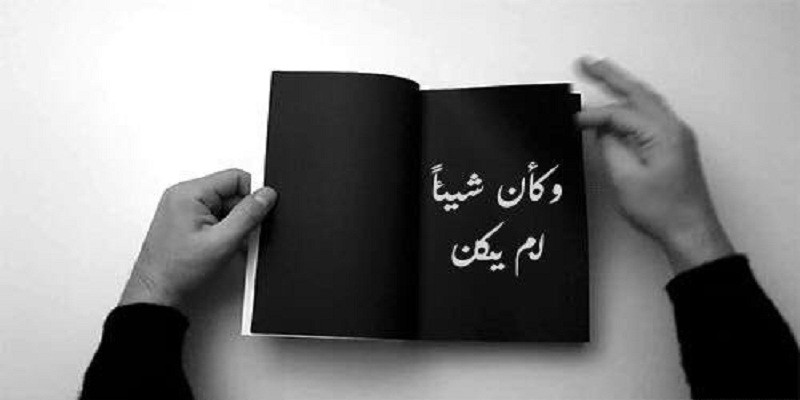 وكأن شيئاً
لم يكن